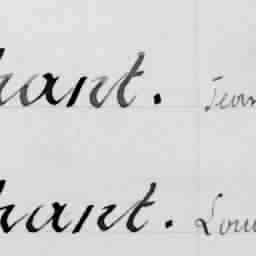 hant. Jean
hant. Lou